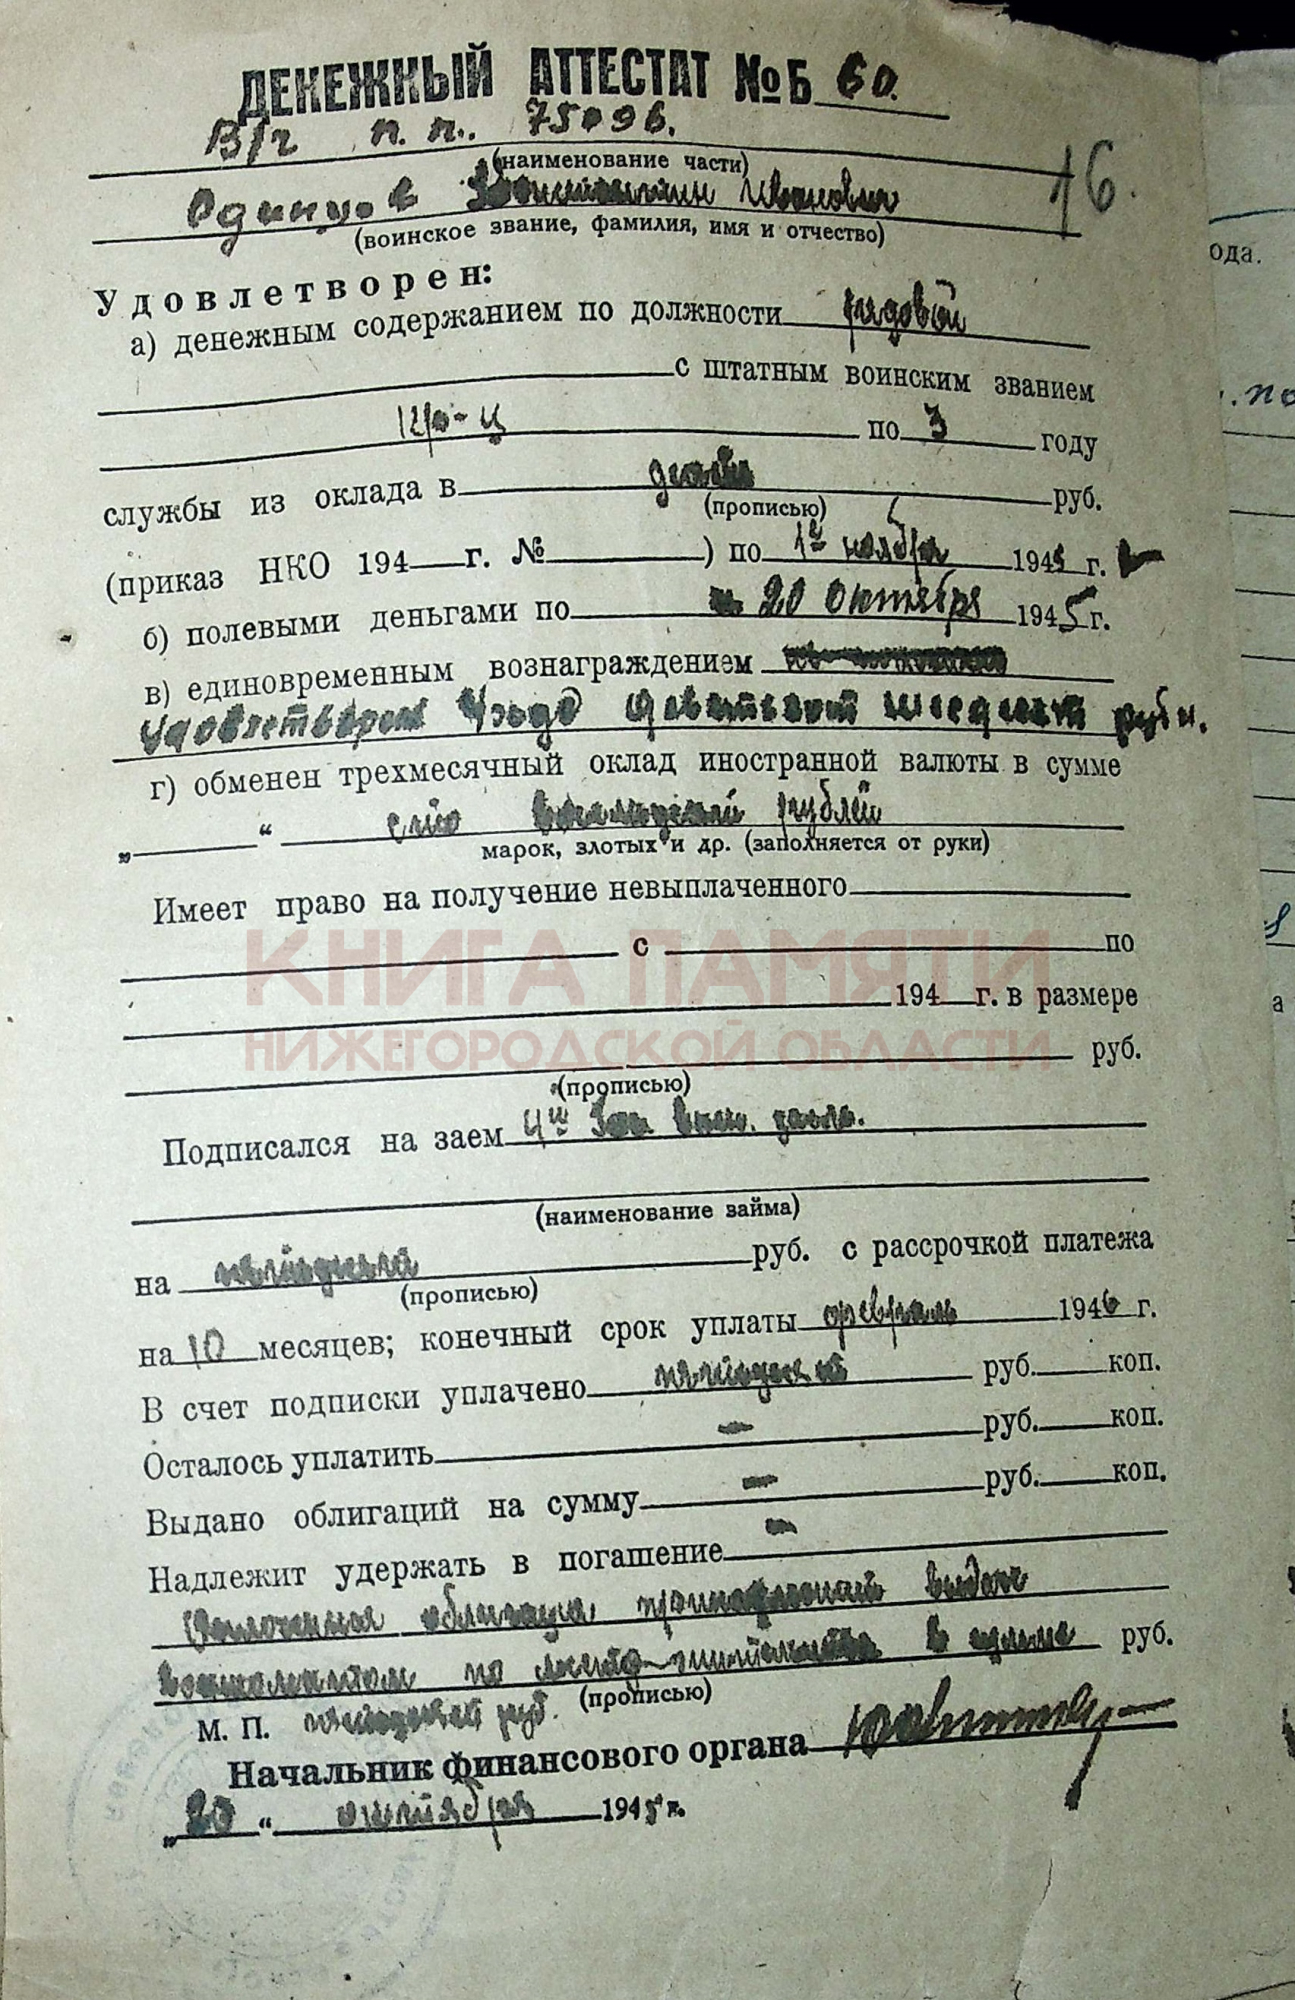 ДЕНЕЖНЫЙ АТТЕСТАТ №Б 60.
В/ч п. п. 75096.
(наименование части)
16.
Одинцов Иванович
(воинское звание, фамилия, имя и отчество)
Удовлетворен:
а) денежным содержанием по должности рядовой
с штатным воинским званием
кр-ц по 3 году
службы из оклада в руб.
(прописью)
(приказ НКО 194 г. № ) по 1е ноября 1945 г.
б) полевыми деньгами по 20 октября 1945 г.
в) единовременным вознаграждением
удовлетворен девятьсот шесдесят рубл.
г) обменен трехмесячный оклад иностранной валюты в сумме
„ “ сто рублей
марок, злотых и др. (заполняется от руки)
Имеет право на получение невыплаченного
с по
194 г. в размере
руб.
(прописью)
КНИГА ПАМЯТИ
НИЖЕГОРОДСКОЙ ОБЛАСТИ
Подписался на заем 4й Гос. воен. заем.
(наименование займа)
на пятьдесят руб. с рассрочкой платежа
(прописью)
на 10 месяцев; конечный срок уплаты февраль 1946 г.
В счет подписки уплачено пятьдесят руб. коп.
Осталось уплатить - руб. коп.
Выдано облигаций на сумму - руб. коп.
Надлежит удержать в погашение -
облигация выдаче
военкоматом по место-жительства в сумме руб.
(прописью)
М. П. пятьдесят руб.
Начальник финансового органа
„20“ октября 1945 г.
ода.